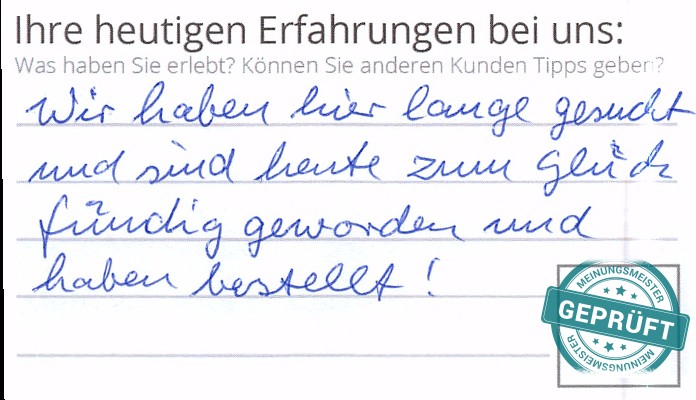 Ihre heutigen Erfahrungen bei uns:
Was haben Sie erlebt? Können Sie anderen Kunden Tipps geben?
Wir haben hier lange gesucht
und sind heute zum Glück
fündig geworden und
haben bestellt!
MEINUNGSMEISTER
GEPRÜFT
MEINUNGSMEISTER